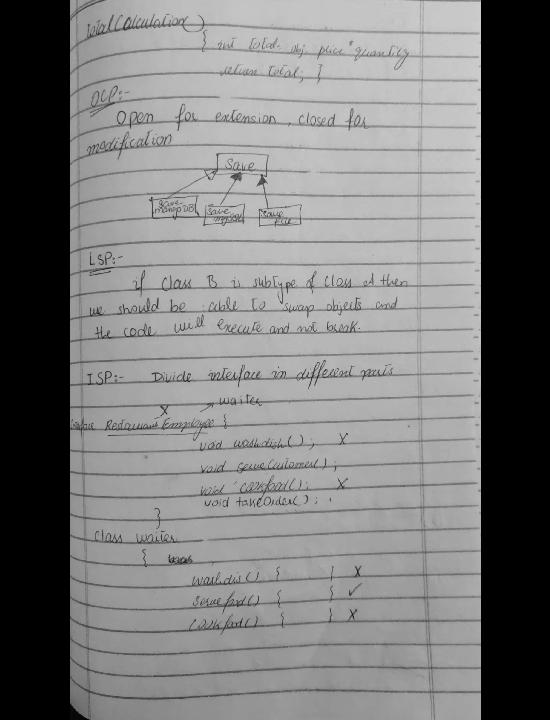 totalCalculation()
{ int total = obj. price * quantity
return total; }
OCP:-
Open for extension, closed for
modification
Save
Save mongo DB
Save mysql
Save file
LSP:-
if Class B is subtype of Class A then
we should be able to swap objects and
the code will execute and not break.
ISP:- Divide interface in different parts
X → waiter
Interface Restaurant Employee {
void washdish(); X
void serveCustomer();
void cookfood(); X
void takeOrder();
}
Class waiter
{
washdis() { } X
servefood() { } ✓
cookfood() { } X